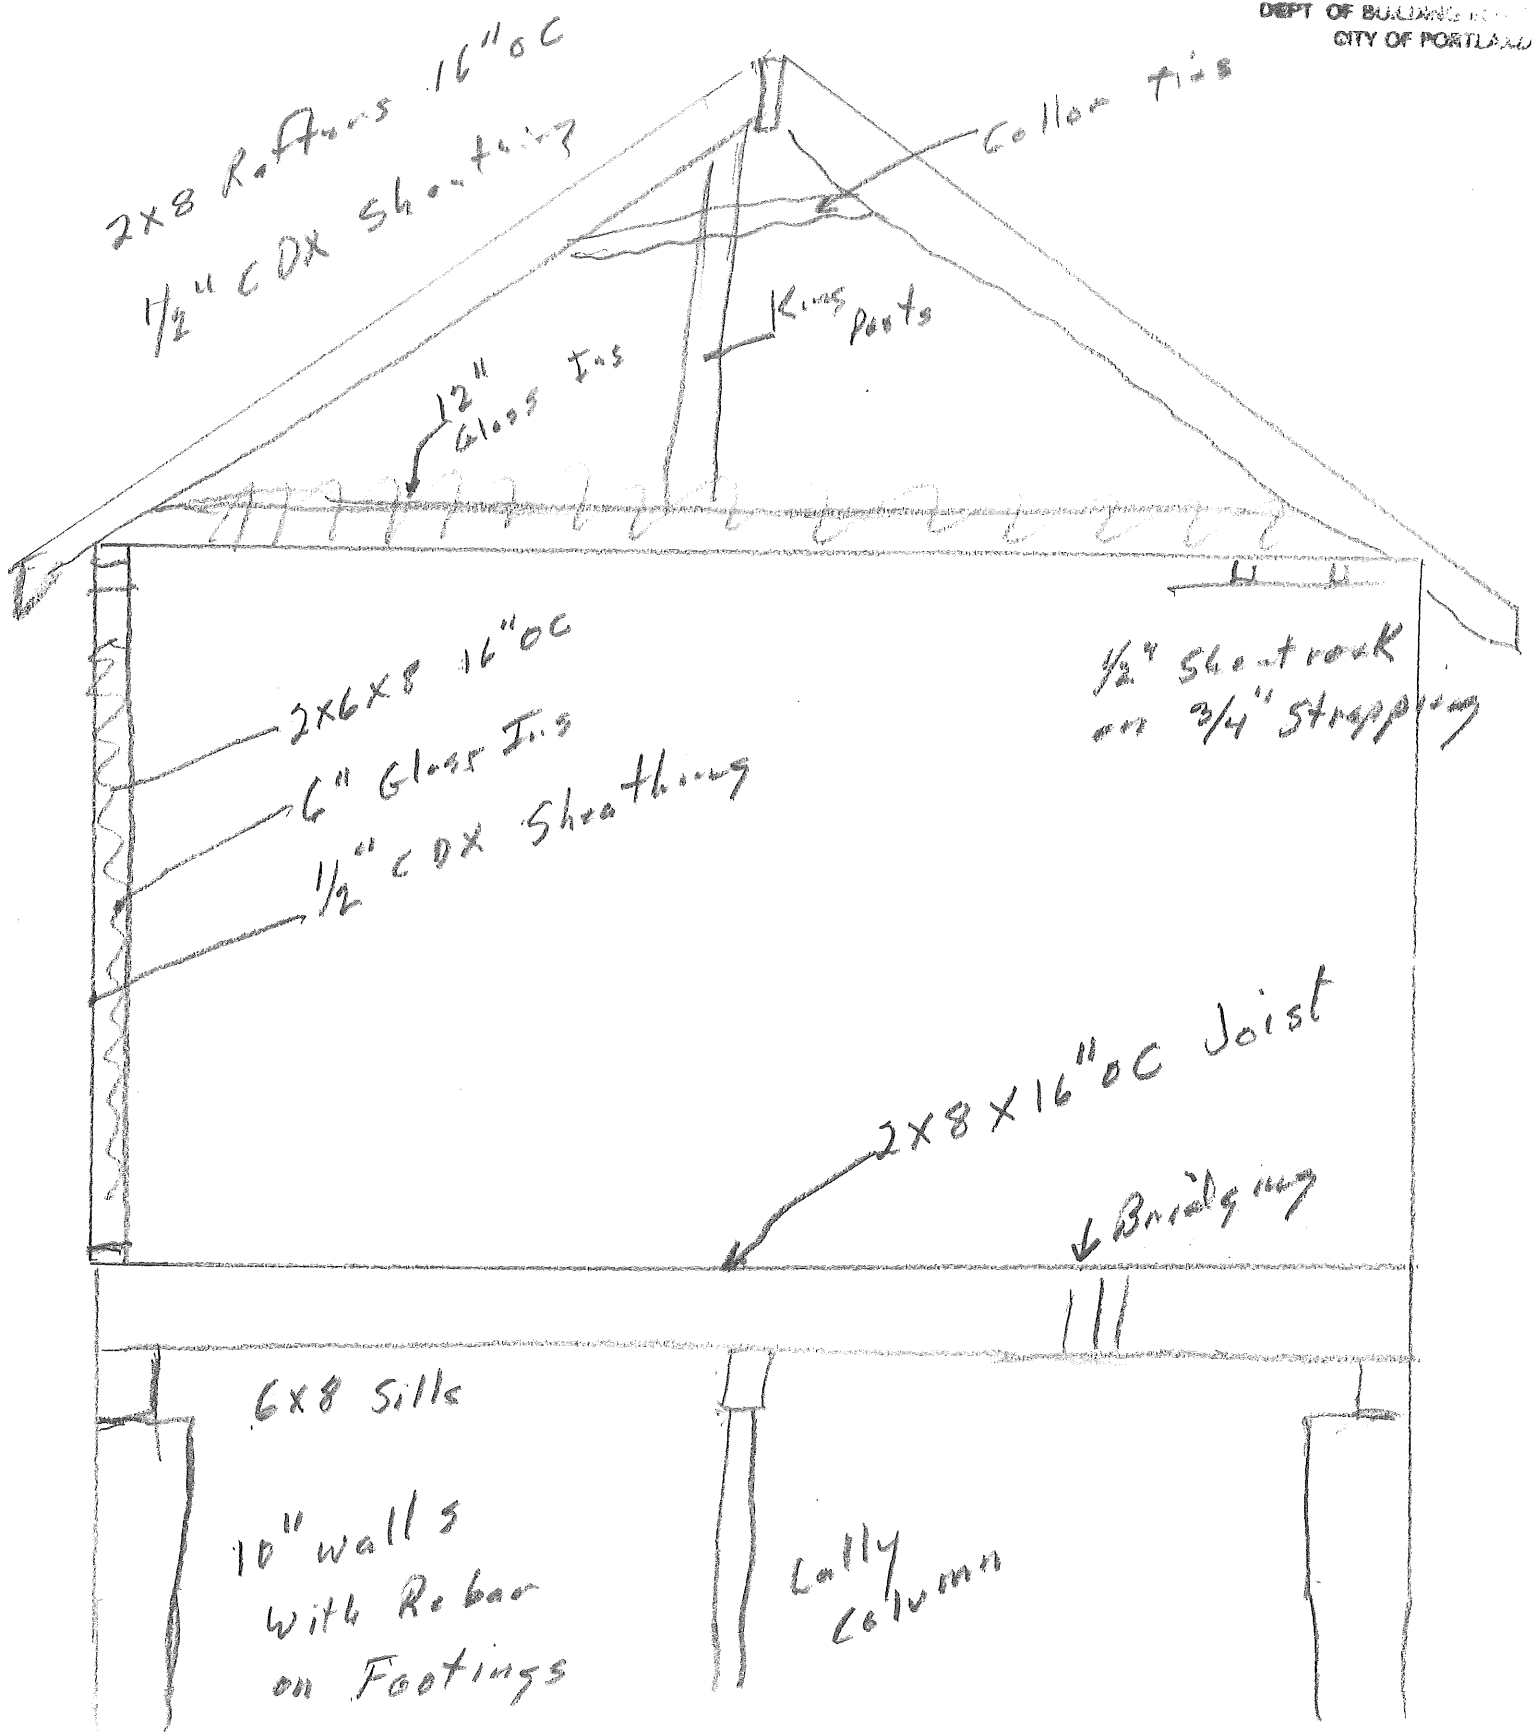 DEPT OF BUILDING
CITY OF PORTLAND
2x8 Rafters 16" OC
1/2" CDX Sheathing
Collar ties
King
Posts
12"
Glass Ins
2x6x8 16" OC
6" Glass Ins
1/2" CDX Sheathing
1/2" Sheetrock
on 3/4" Strapping
2x8x16" OC Joist
Bridging
6x8 Sills
10" walls
with Rebar
on Footings
Lally
Column